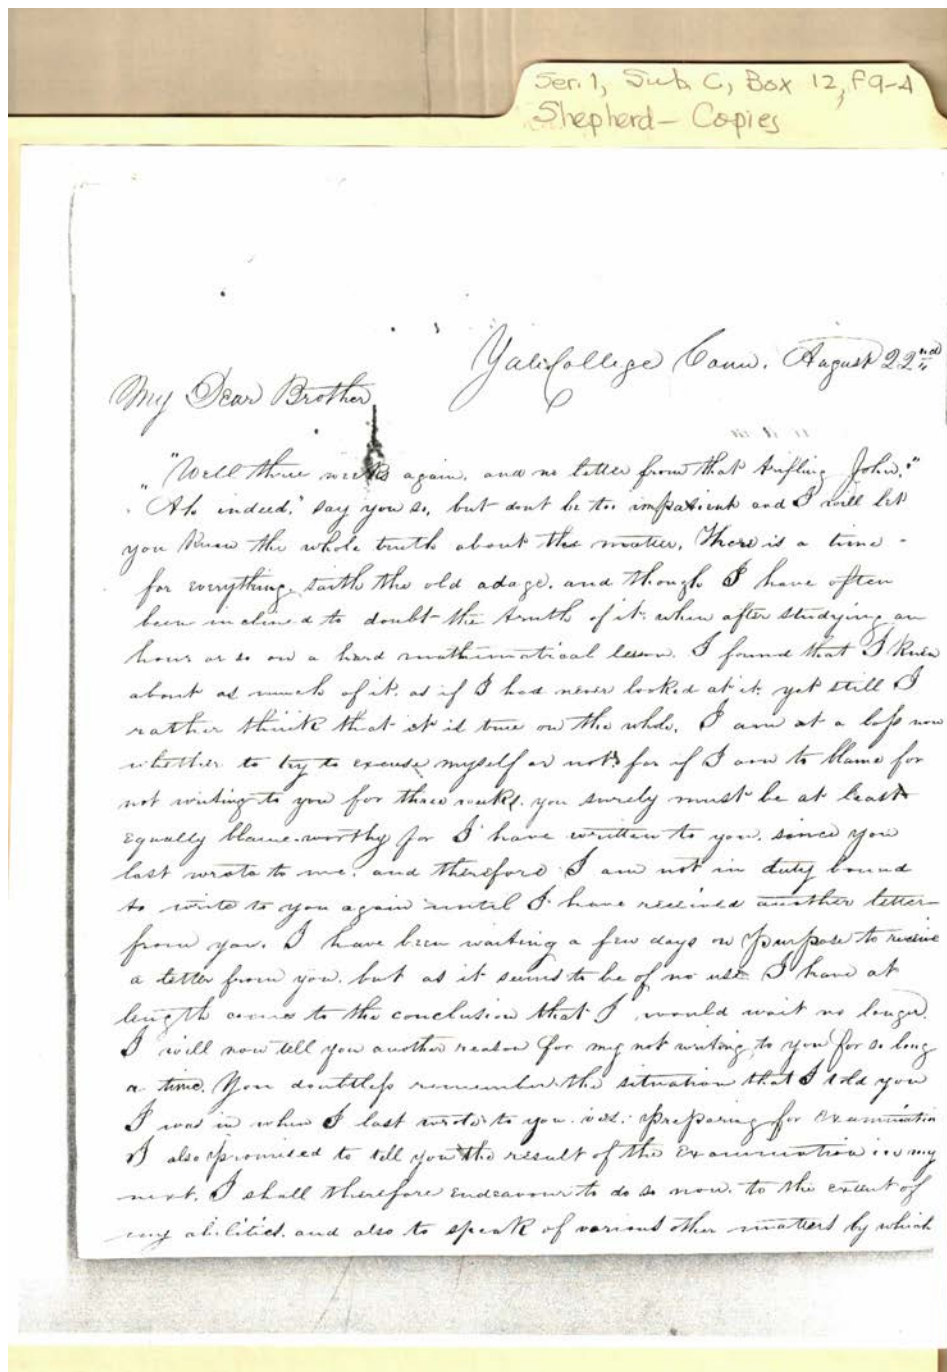 Ser. 1, Sub C, Box 12, F9-4
Shepherd - Copies
Yale College Conn. August 22nd
My Dear Brother
"Well three weeks again, and no letter from that trifling John."
"Ah indeed," say you so, but dont be too impatient and I will let
you know the whole truth about the matter. There is a time
for everything, saith the old adage, and though I have often
been inclined to doubt the truth of it, when after studying an
hour or so on a hard mathematical lesson I found that I knew
about as much of it, as if I had never looked at it, yet still I
rather think that it is true on the whole. I am at a loss now
whether to try to excuse myself or not, for if I am to blame for
not writing to you for three weeks, you surely must be at least
equally blame-worthy for I have written to you, since you
last wrote to me, and therefore I am not in duty bound
to write to you again until I have received another letter
from you. I have been waiting a few days on purpose to receive
a letter from you, but as it seems to be of no use I have at
length come to the conclusion that I would wait no longer.
I will now tell you another reason for my not writing to you for so long
a time. You doubtless remember the situation that I told you
I was in when I last wrote to you. viz: preparing for Examination
I also promised to tell you the result of the Examination in my
next. I shall therefore endeavour to do so now, to the extent of
my abilities, and also to speak of various other matters by which